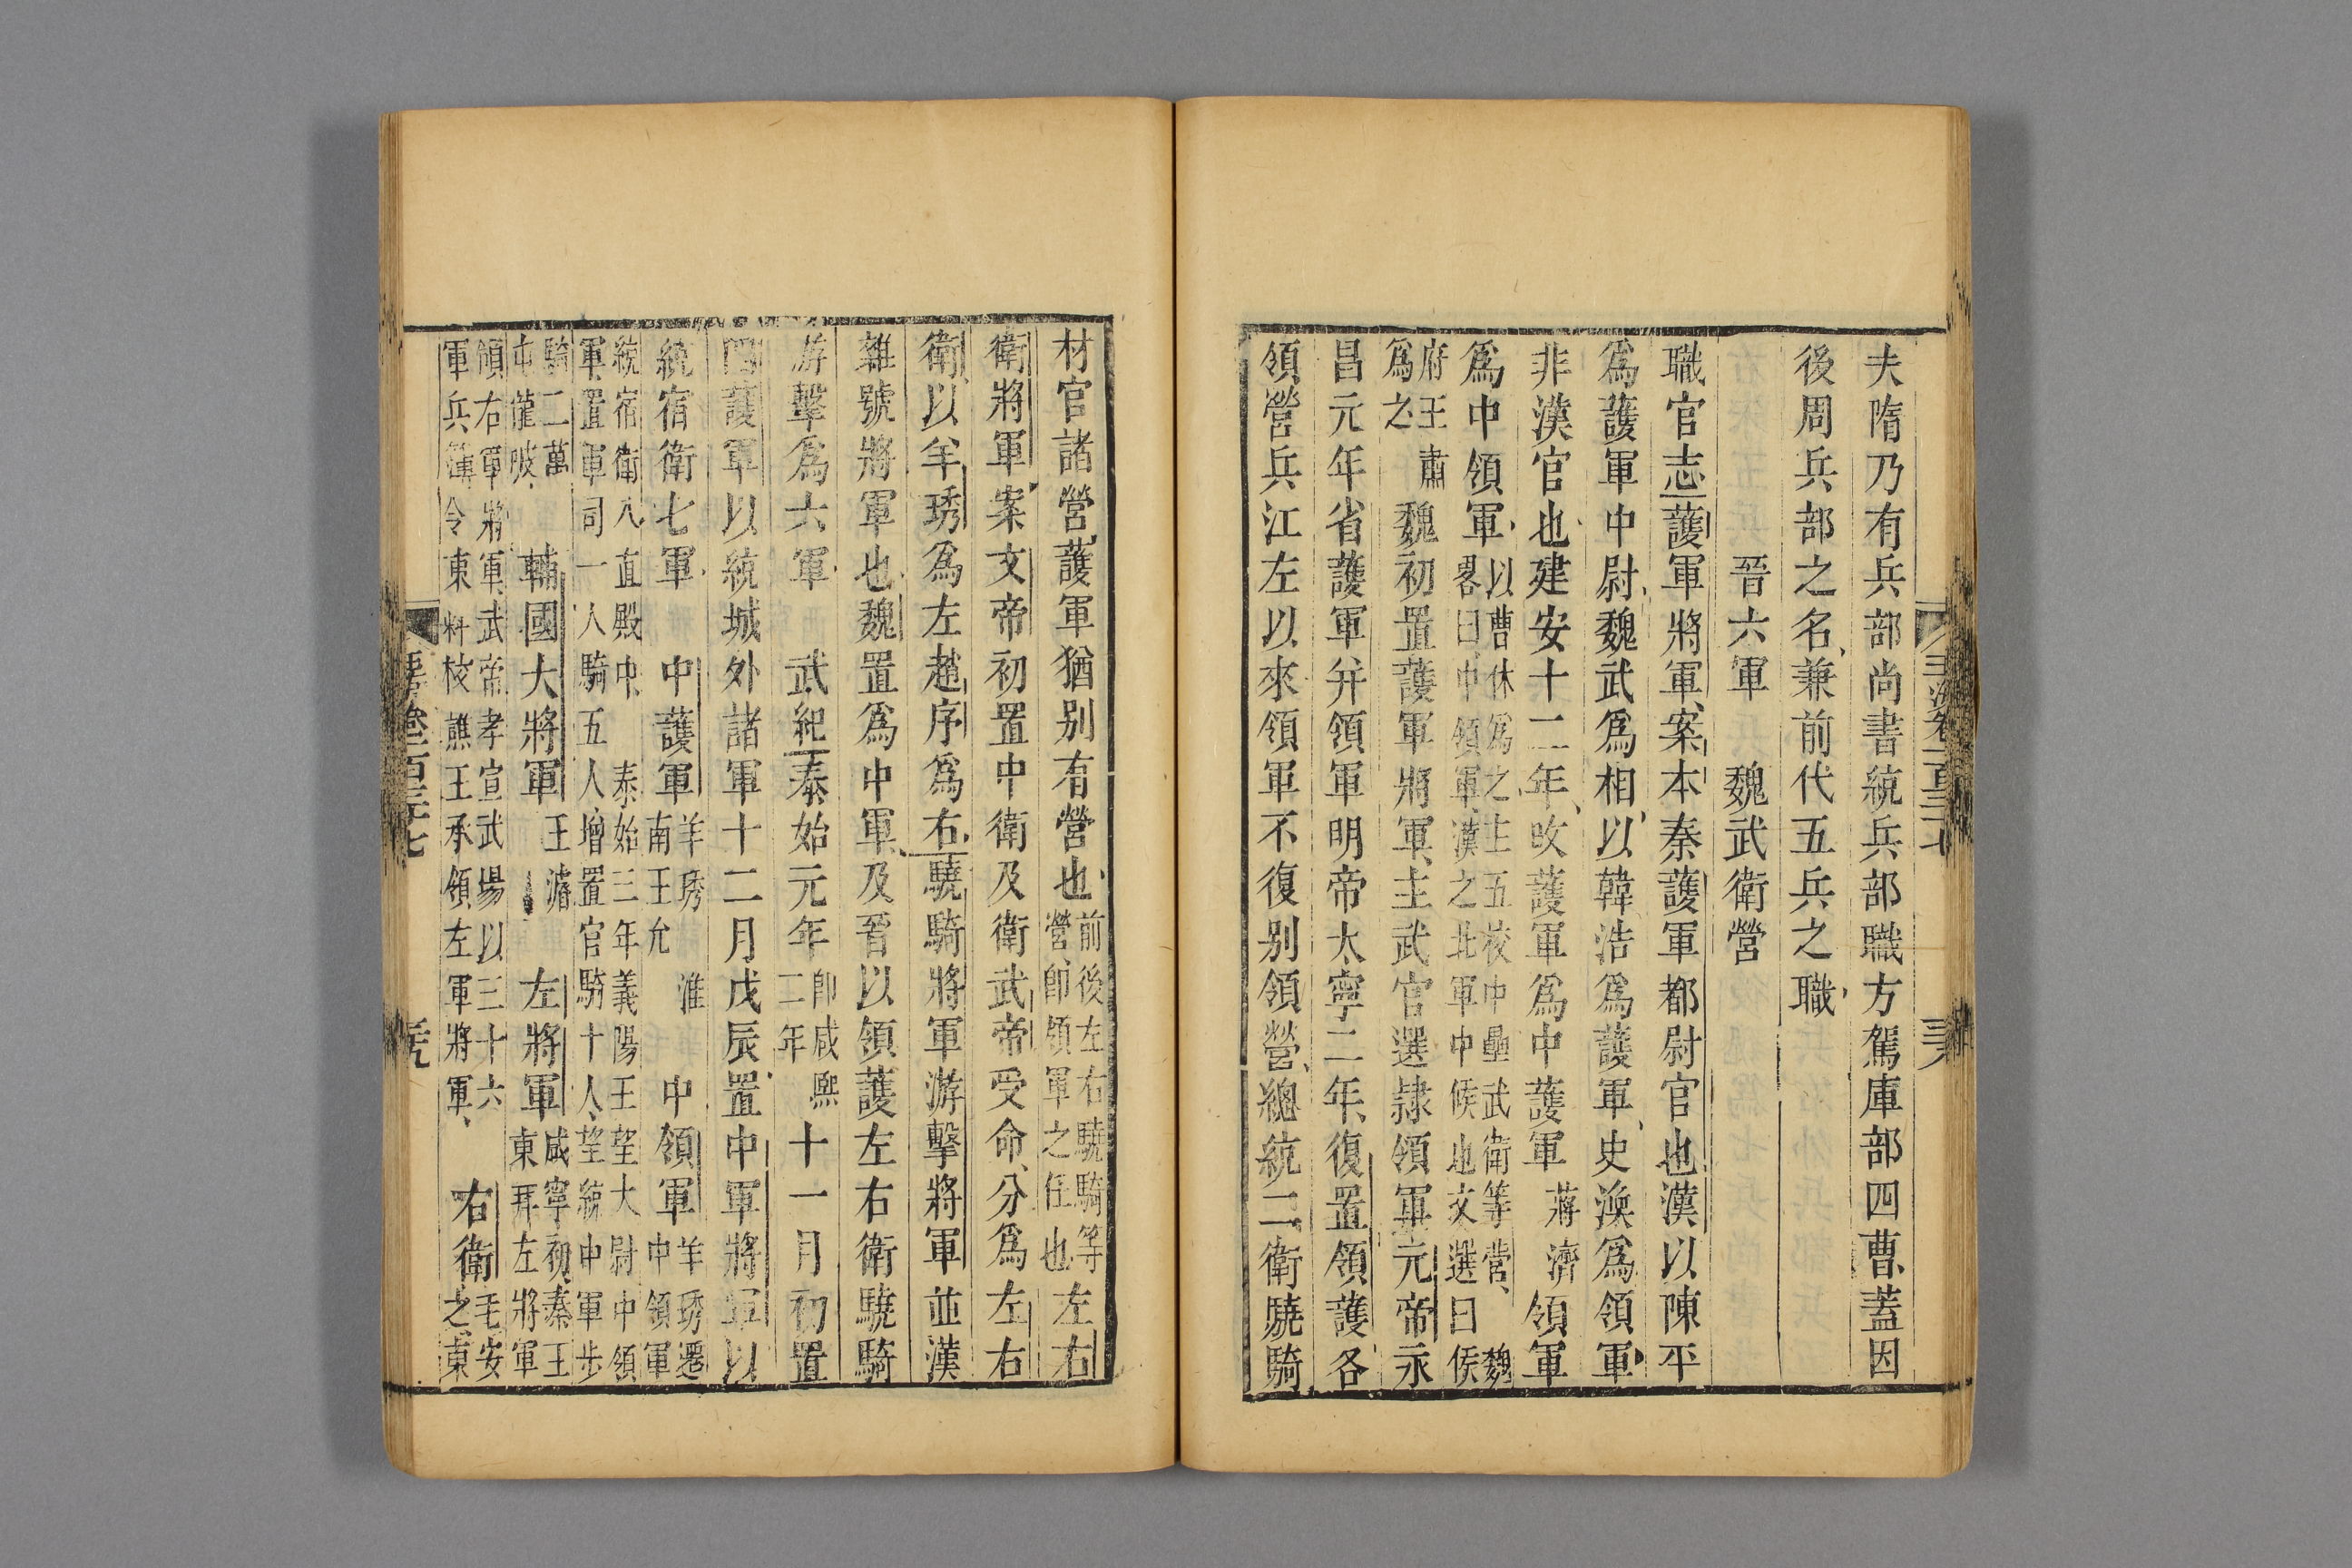 夫隋乃有兵部尚書統兵部職方駕庫部四曹蓋因
後周兵部之名兼前代五兵之職
晉六軍 魏武衛營
職官志護軍將軍案本秦護軍都尉官也漢以陳平
爲護軍中尉魏武爲相以韓浩爲護軍史渙爲領軍
非漢官也建安十二年改護軍爲中護軍蔣濟領軍
爲中領軍以曹休爲之主五校中壘武衛等營魏
畧曰中領軍漢之北軍中候也文選曰侯
府王肅
爲之
魏初置護軍將軍主武官選隷領軍元帝永
昌元年省護軍并領軍明帝太寧二年復置領護各
領營兵江左以來領軍不復别領營總統二衛驍騎
材官諸營護軍猶别有營也前後左右驍騎等
營卽領軍之任也左右
衛將軍案文帝初置中衛及衛武帝受命分爲左右
衛以羊琇爲左趙序爲右驍騎將軍游擊將軍並漢
雜號將軍也魏置爲中軍及晉以領護左右衛驍騎
游擊爲六軍 武紀泰始元年卽咸熙
二年十一月初置
四護軍以統城外諸軍十二月戊辰置中軍將軍以
統宿衛七軍 中護軍羊琇 淮
南王允 中領軍羊琇遷
中領軍
統宿衛八直殿中 泰始三年義陽王望大尉中領
軍置軍司一人騎五人增置官騎十人望統中軍步
騎二萬
屯龍陂 輔國大將軍王濬 左將軍咸寧初秦王
東拜左將軍
領右軍將軍武帝孝宣武場以三十六
軍兵簿令東料校譙王承領左軍將軍 右衛毛安
之東
玉海卷一百三十七
玉海卷一百三十七